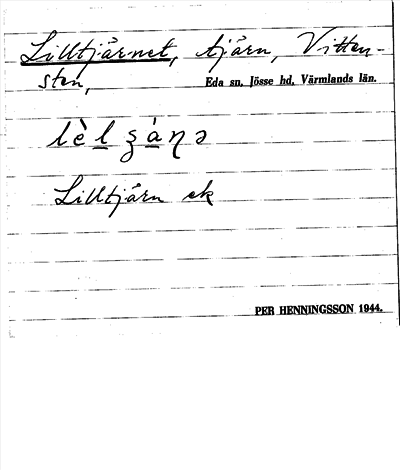 Lilltjärnet, tjärn, Vitten-
sten, Eda sn, Jösse hd, Värmlands län.
Lilltjärn ek
PER HENNINGSSON 1944.